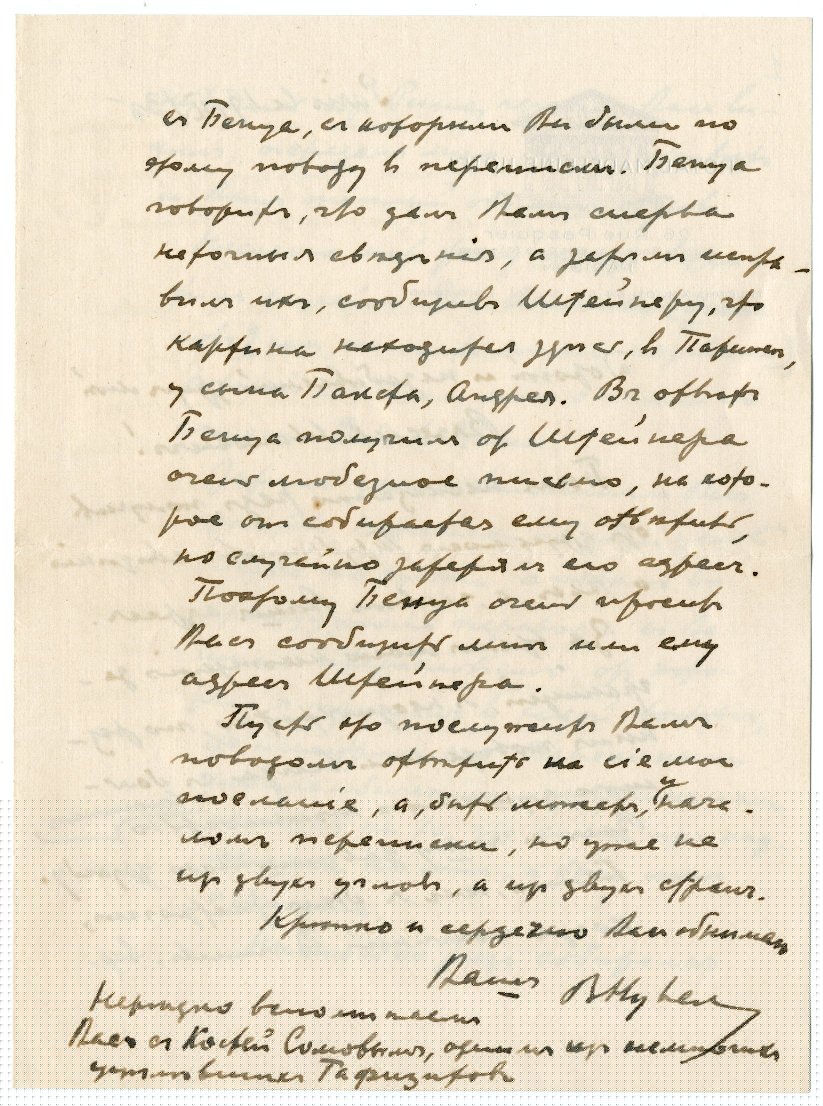 съ Бенуа, съ которымъ Вы были по
этому поводу въ перепискѣ. Бенуа
говоритъ, что далъ Вамъ сперва
неточныя свѣдѣнія, а затѣмъ испра-
вилъ ихъ, сообщивъ Штейнеру, что
картина находится здѣсь, въ Парижѣ,
у сына Бакста, Андрея. Въ отвѣтъ
Бенуа получилъ от Штейнера
очень любезное письмо, на кото-
рое онъ собирается ему отвѣтить,
но случайно затерялъ его адресъ.
Поэтому Бенуа очень проситъ
Васъ сообщить мнѣ или ему
адресъ Штейнера.
Пусть это послужитъ Вамъ
поводомъ отвѣтить на сіе мое
посланіе, а, быть можетъ, и нача-
ломъ переписки, но уже не
изъ двухъ угловъ, а изъ двухъ странъ.
Крѣпко и сердечно Васъ обнимаю
Вашъ ВНувель
Нерѣдко вспоминаемъ
Васъ съ Костей Сомовымъ, однимъ изъ немногихъ
уцѣлѣвшихъ Гафизитовъ